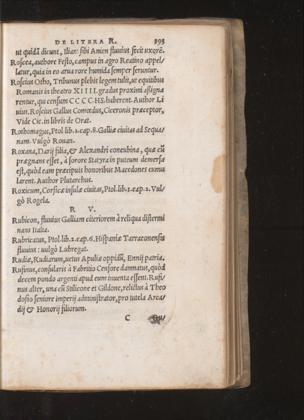 DE LITERA R. 393
ut quidã dicunt, iliæ: sibi Amen fluuius fecit uxorẽ.
Rosea, authore Festo, campus in agro Reatino appel-
latur, quia in eo arua rore humida semper seruntur.
Roscius Otho, Tribunus plebit legem tulit, ut equitibus
Romanis in theatro XIIII. gradus proximi assigna
rentur, qui censum CCCC HS. haberent. Author Li
uius. Roscius Gallus Comœdus, Ciceronis præceptor,
Vide Cic. in libris de Orat.
Rothomagus, Ptol. lib. 2. cap. 8. Galliæ ciuitas ad Sequa
nam. Vulgò Rouan.
Roxana, Darij filia, & Alexandri coneubina, quæ cũ
prægnans esset, à sorore Statyra in puteum demersa
est, quòd eam præcipuis honoribus Macedones cumu
larent. Author Plutarchus.
Roxicum, Corsicæ insulæ ciuitas, Ptol. lib. 3. cap. 2. Vul
gò Rogela.
R V.
Rubicon, fluuius Galliam citeriorem à reliqua distermi
nans Italia.
Rubricatus, Ptol. lib. 2. cap. 6. Hispaniæ Tarraconensis
fluuius: uulgò Lubregat.
Rudiæ, Rudiarum, uetus Apuliæ oppidũ, Ennij patria.
Rufinus, consularis à Fabritio Censore damnatus, quòd
decem pondo argenti apud eum inuenta essent. Rufi
nus alter, unà cũ Stilicone et Gildone, relictus à Theo
dosio seniore imperij administrator, pro tutela Arca
dij & Honorij filiorum.
C